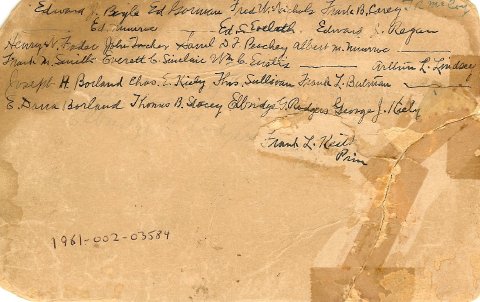 Edward J. Boyle Ed Gorman Fred W. Nichols Frank B. Carey McCoy
Ed. Munroe Ed. S. Eveleth Edward J. Regan
Henry W. Fader John Tocher Saml D. F. Peachey Albert M. Munroe
Frank M. Smith Everett C. Sinclair Wm C. Arthur L. Lindsey
Joseph H. Borland Chas. E. Kiely Thos. Sullivan Frank L. Bateman
E. Drua Borland Thomas B. Stacey Elbridge G. Rodgers George J. Kiely
Frank L. Keith
Prin
1961-002-03584